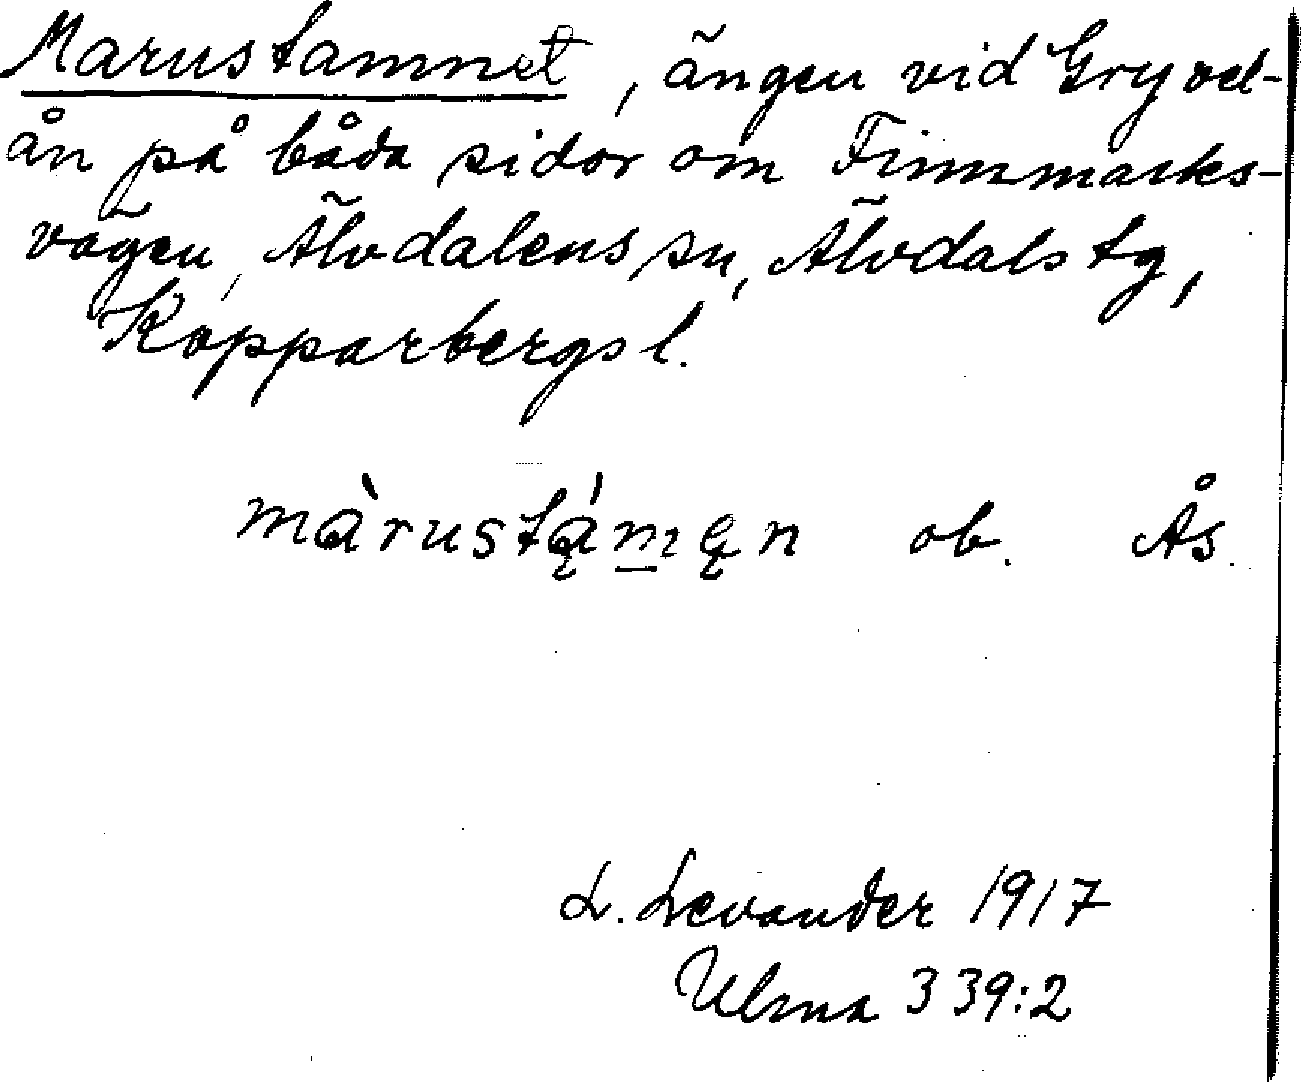 Marustamnet, ängen vid Gryvel-
ån på båda sidor om Finnmarks-
vägen, Älvdalens sn, Älvdals tg,
Kopparbergs l.
màrustą́męn ob. Ås.
L. Levander 1917
Ulma 339:2